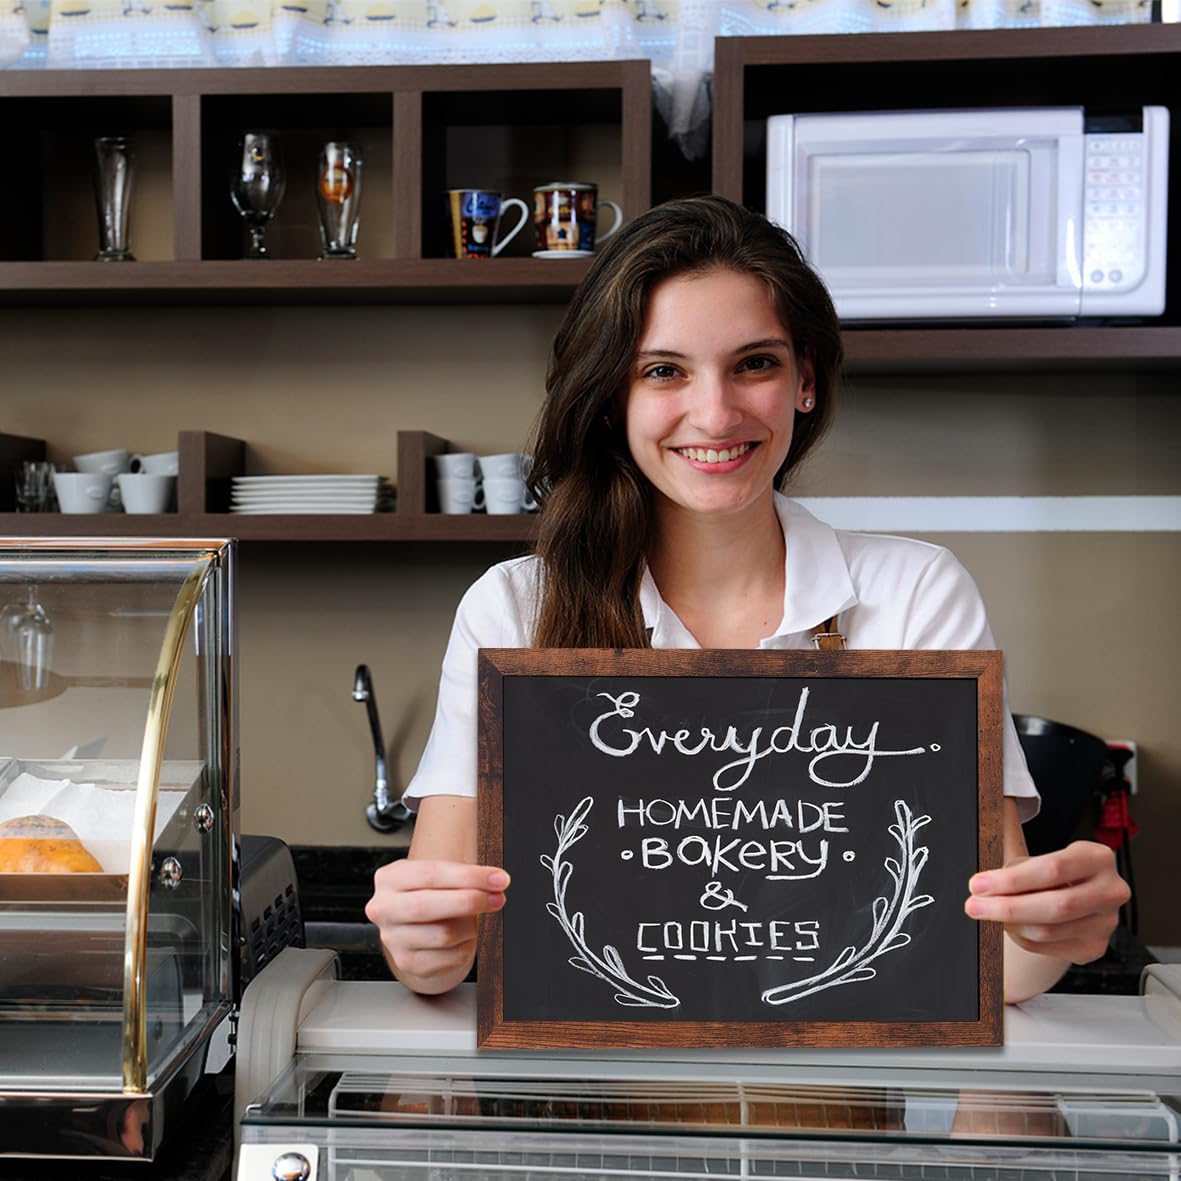 Everyday.
HOMEMADE
·BAKERY·
&
COOKIES